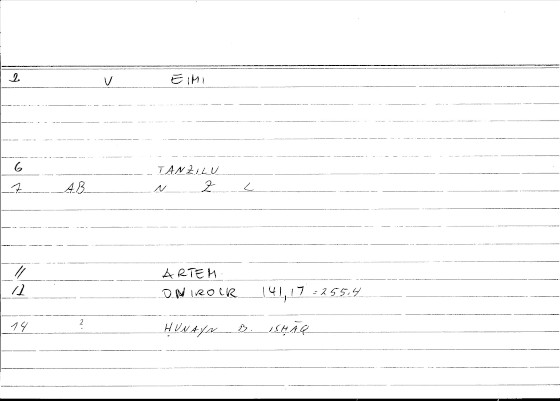 2 V EIMI
6 TANZILU
7 AB N Z L
11 ARTEM
12 ONIROCR 141,17 = 255.4
14 ? ḤUNAYN B. ISḤĀQ